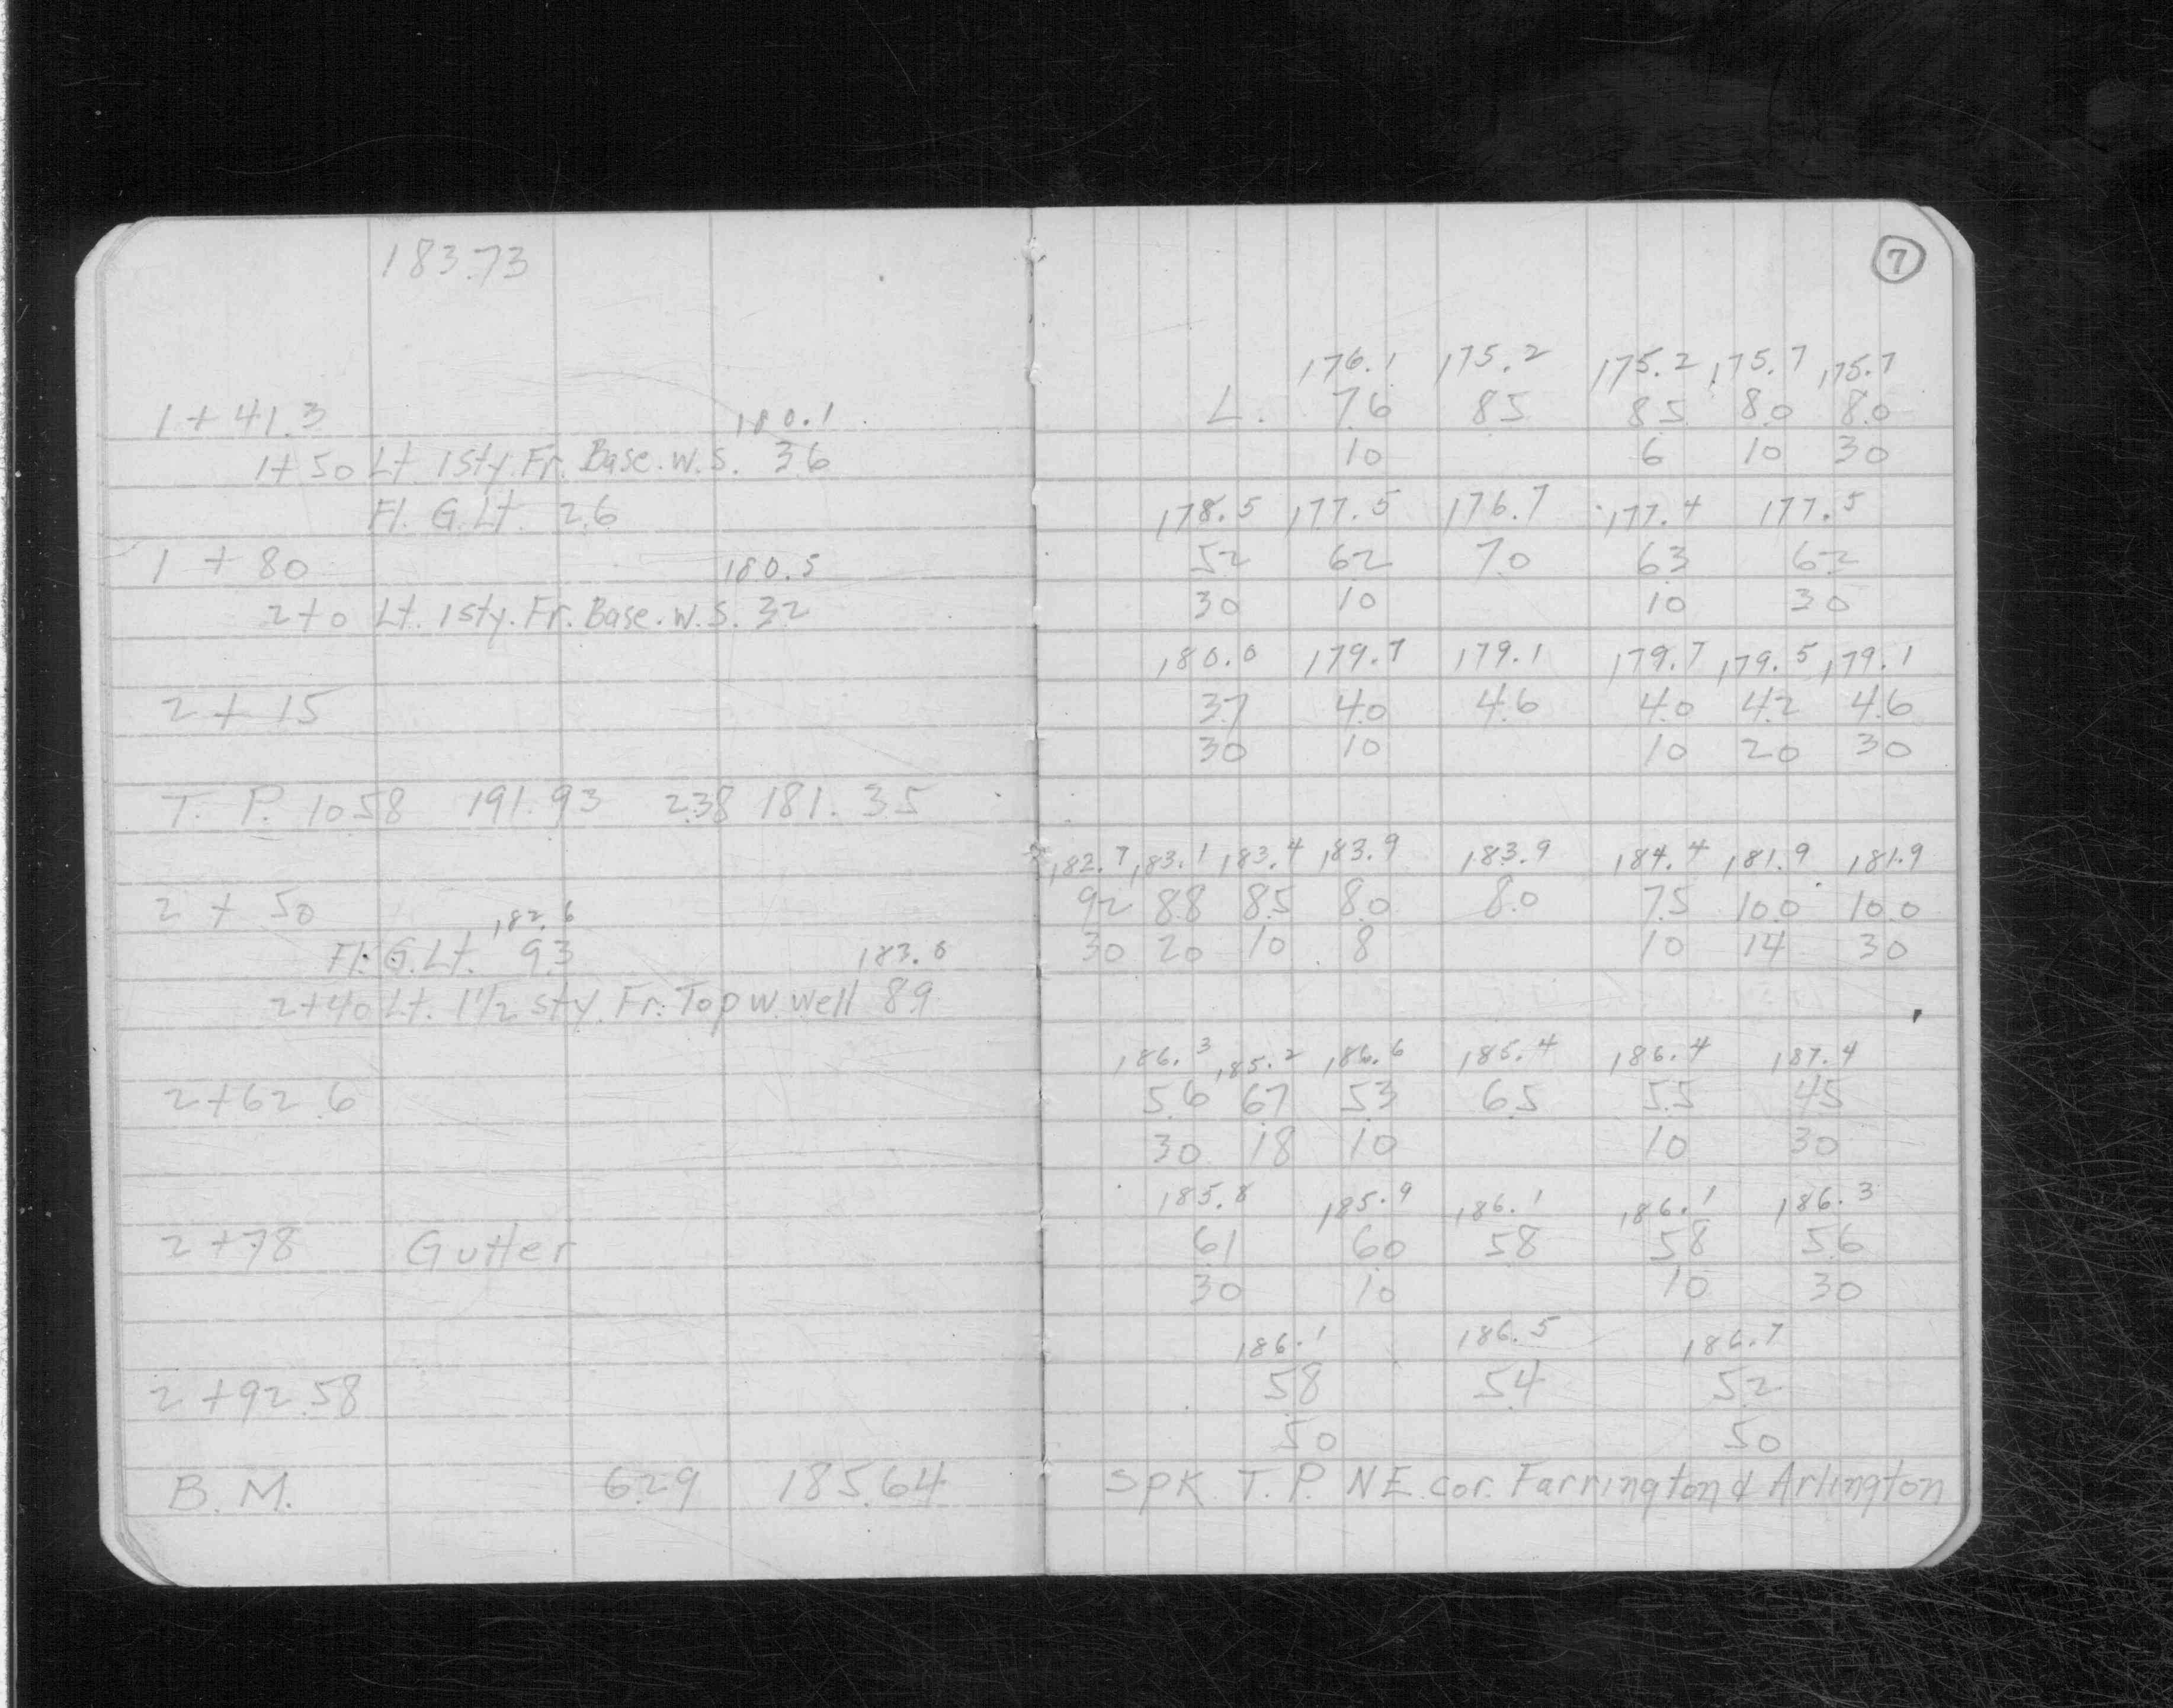 183.73
7
176.1 175.2 175.2 175.7 175.7
1 + 41.3 180.1 L. 7.6 8.5 8.5 8.0 8.0
1+50 Lt. 1 sty. Fr. Base. w. s. 3.6 10 6 10 30
Fl. G. Lt. 2.6 178.5 177.5 176.7 177.4 177.5
1 + 80 180.5 5.2 6.2 7.0 6.3 6.2
2+0 Lt. 1 sty. Fr. Base. w. s. 3.2 30 10 10 30
180.0 179.7 179.1 179.7 179.5 179.1
2 + 15 3.7 4.0 4.6 4.0 4.2 4.6
30 10 10 20 30
T. P. 10.58 191.93 2.38 181.35
182.7 183.1 183.4 183.9 183.9 184.4 181.9 181.9
2 + 50 182.6 9.2 8.8 8.5 8.0 8.0 7.5 10.0 10.0
Fl. G. Lt. 9.3 183.0 30 20 10 8 10 14 30
2+40 Lt. 1 1/2 sty. Fr. Top w. well 8.9
186.3 185.2 186.6 185.4 186.4 187.4
2+62.6 5.6 6.7 5.3 6.5 5.5 4.5
30 18 10 10 30
185.8 185.9 186.1 186.1 186.3
2+78 Gutter 6.1 6.0 5.8 5.8 5.6
30 10 10 30
186.1 186.5 186.7
2+92.58 5.8 5.4 5.2
50 50
B. M. 6.29 185.64 Spk T. P. NE. cor. Farrington & Arlington